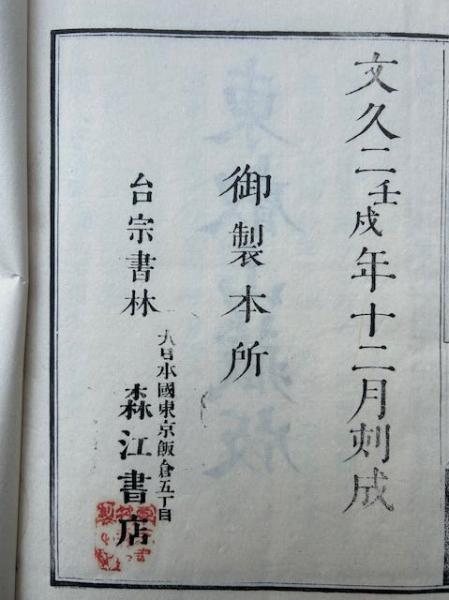 文久二壬戌年十二月刺成
御製本所
台宗書林
大日本國東京飯倉五丁目
森江書店